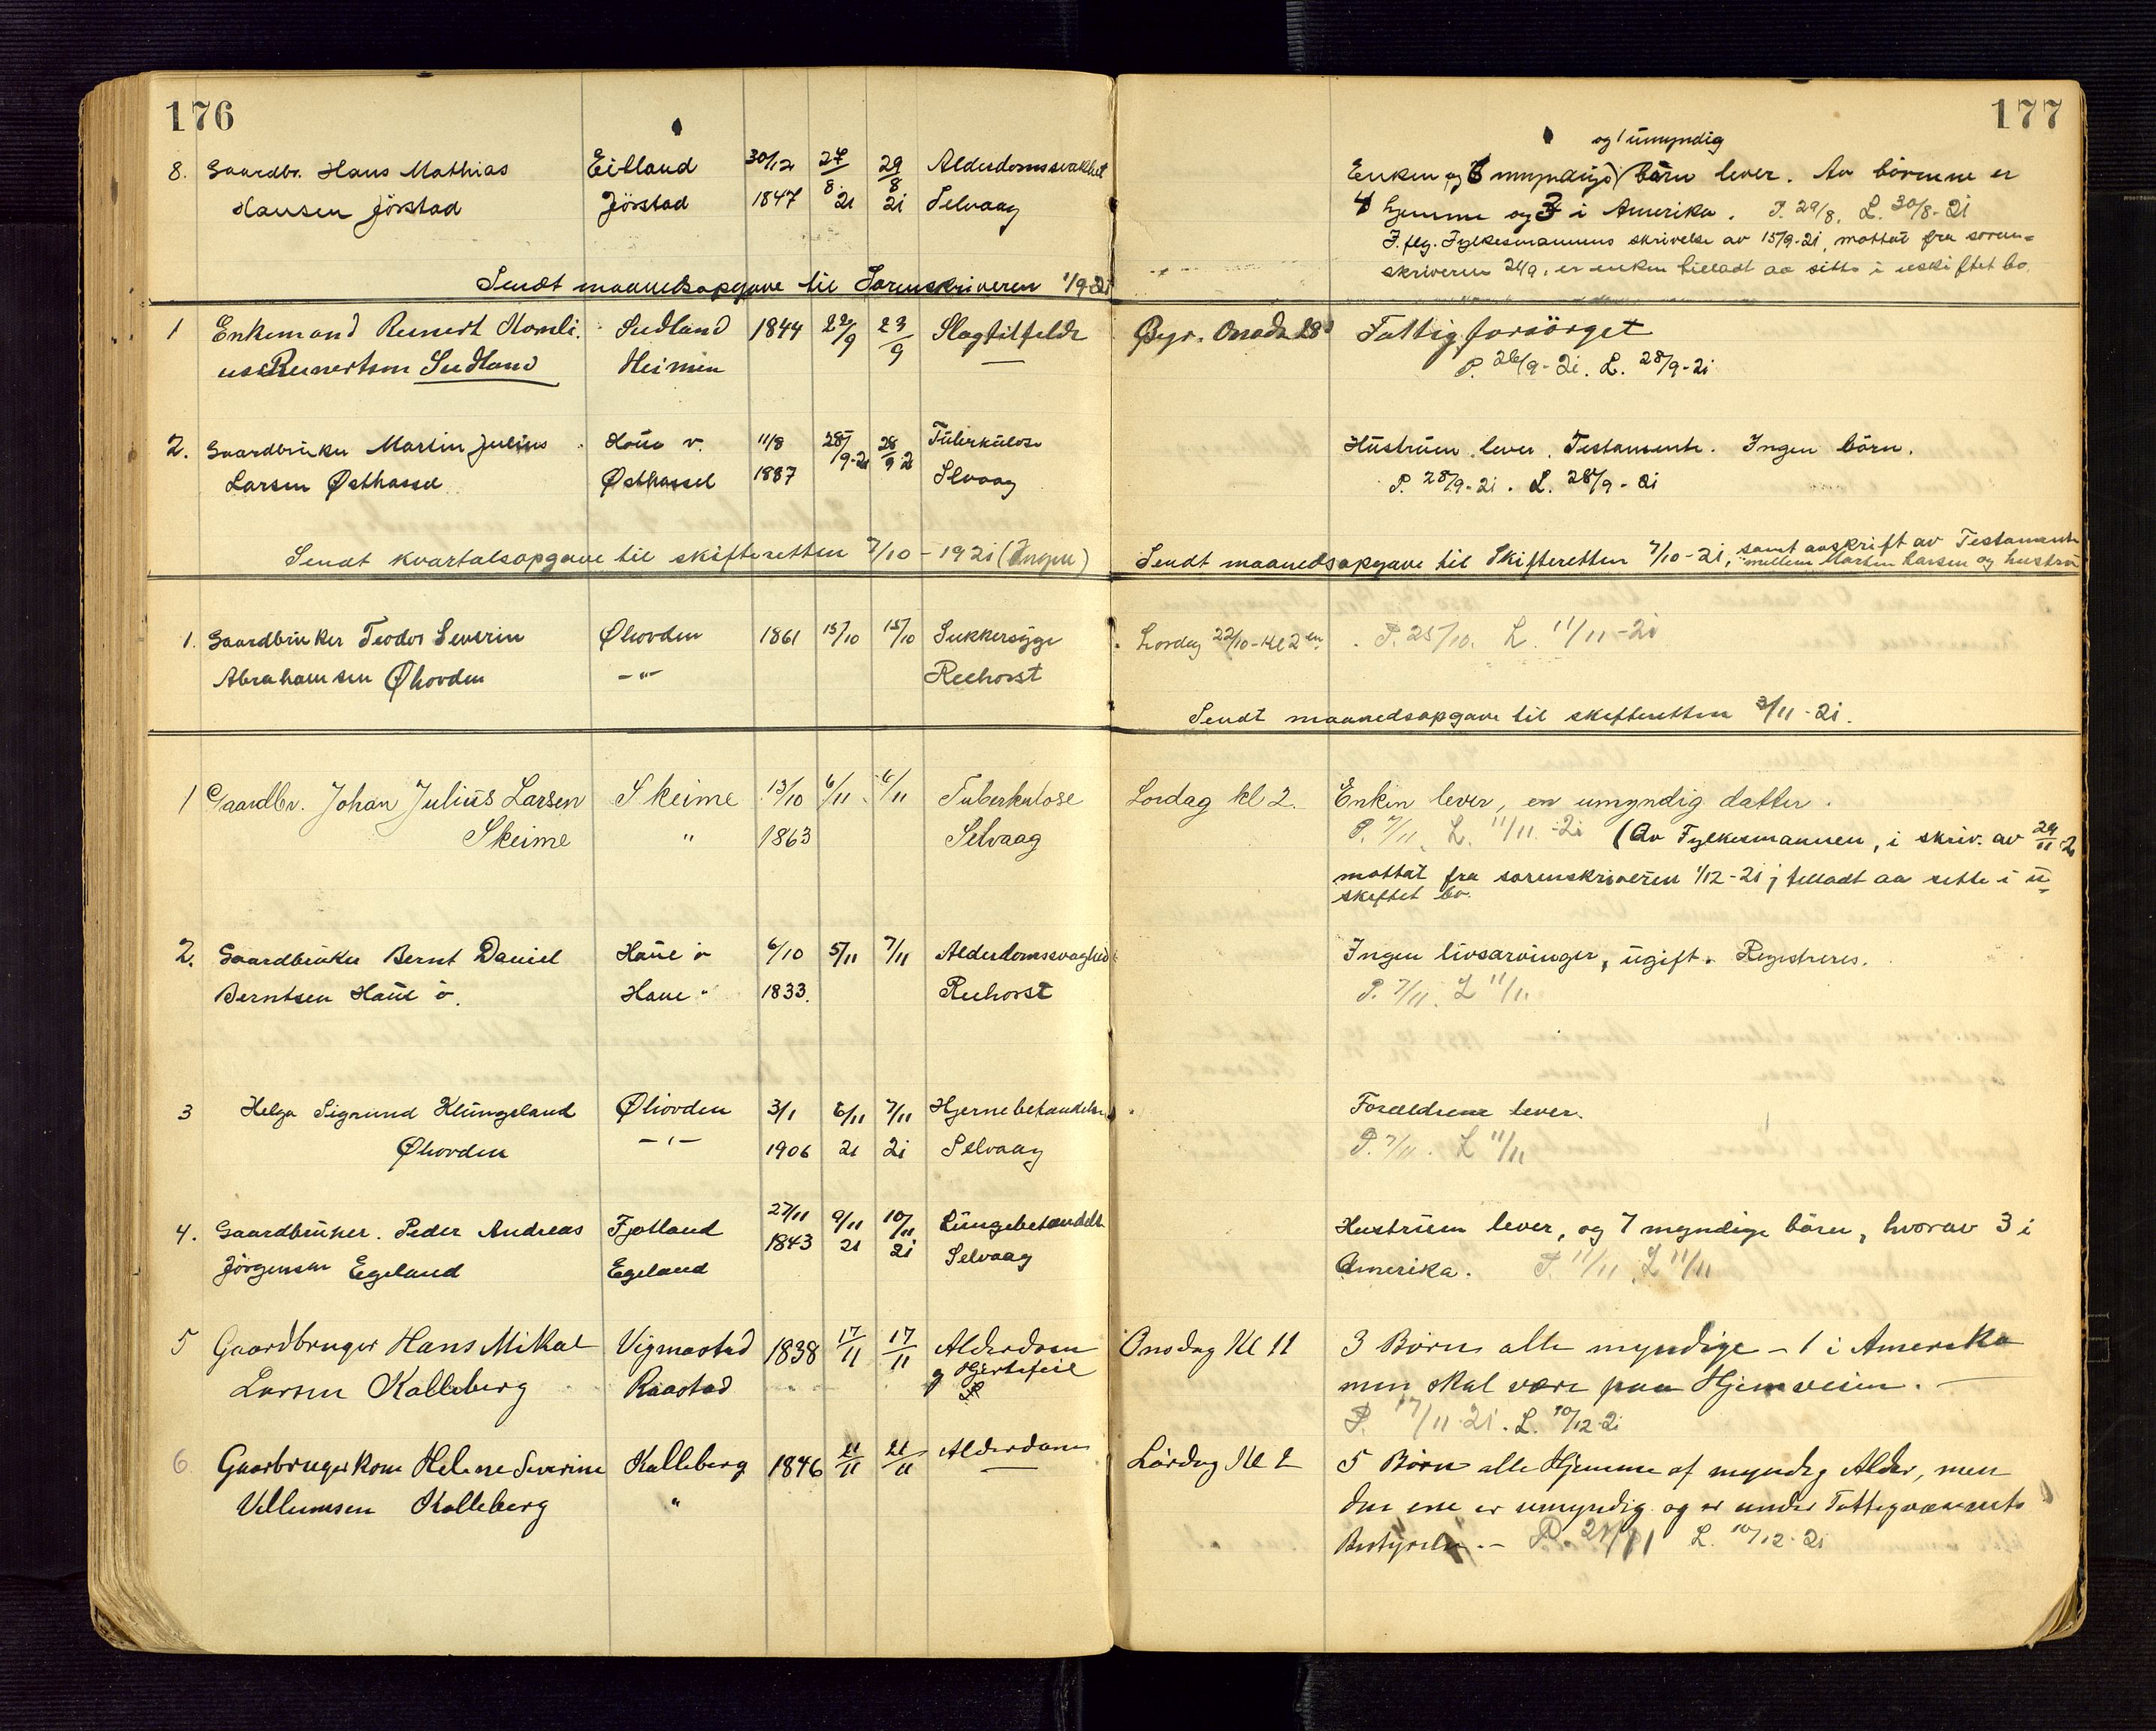 176
8. Gaardbr. Hans Mathias Eitland 30/12 27/8 29/8 Alderdomssvakhet
Hansen Jörstad Jörstad 1847 21 21 Selvaag
Sendt maanedsopgave til Sorenskriveren 1/9-21
1 Enkemand Reinert Homli- Sudland 1844 22/9 23/9 Slagtilfelde
us Reinertsen Sudland Heimen
2. Gaardbruker Martin Julius Haue v. 11/8 28/9-21 28/9 2 Tüberkülose
Larsen Østhassel Østhassel 1887 Selvaag
Sendt kvartalsopgave til skifteretten 7/10-1921 (Ingen)
1. Gaardbrüker Teodor Severin Øhovden 1861 15/10 15/10 Sukkersyge
Abrahamsen Øhovden -"- Reehorst
1 Gaardbr. Johan Juliüs Larsen Skeime 13/10 6/11 6/11 Tuberkulose
Skeime " 1863 Selvaag
2. Gaardbrüker Bernt Daniel Haüe ö 6/10 5/11 7/11 Alderdomssvaghed
Berntsen Haüe ö. Haue " 1833. Reehorst
3 Helga Sigrund Klüngeland Øhovden 3/1 6/11 7/11 Hjernebetændelse
Øhovden -"- 1906 21 21 Selvaag
4. Gaardbrüker. Peder Andreas Fjotland 27/11 9/11 10/11 Lüngebetændelse
Jörgensen Egeland Egeland 1843 21 21 Selvaag
5 Gaardbruger Hans Mikal Vigmostad 1838 17/11 17/11 Alderdom
Larsen Kalleberg Raastad og Hjertefeil
6. Gaarbrugerkone Helene Severine Kalleberg 1846 21/11 21/11 Alderdom
Villumsen Kalleberg "
177
og 1 umyndig
Enken og 6 myndige) börn lever. Av börnene er
4 hjemme og 3 i Amerika. P. 29/8. L. 30/8-21
I.flg. Fylkesmannens skrivelse av 15/9-21, mottat fra soren-
skriveren 24/9, er enken tilladt aa sitte i uskiftet bo.
Onsda 28' Fattigforsörget
P. 26/9-21. L. 28/9-21
Hüstrüen lever. Testamente. Ingen börn.
P. 28/9-21. L. 28/9-21
Sendt maanedsopgave til Skifteretten 7/10-21, samt avskrift av Testamente
mellem Martin Larsen og hustru
Lordag 22/10-Kl 2 em. P. 25/10. L. 11/11-21
Sendt maanedsopgave til skifteretten 3/11-21.
Lordag kl 2. Enken lever, en umyndig datter.
P. 7/11. L. 11/11-21 (Av Fylkesmannen, i skriv. av 29/11 2
mottat fra sorenskriveren 1/12-21, tilladt aa sitte i ü-
skiftet bo.
Ingen livsarvinger, ügift. Registreres.
P. 7/11. L 11/11
Forældrene lever.
P. 7/11. L 11/11
Hustrüen lever, og 7 myndige börn, hvorav 3 i
Amerika. P. 11/11. L 11/11
Onsdag Kl 11 3 Börn alle myndige - 1 i Amerika
men skal være paa Hjemveien. -
P. 17/11-21. L. 10/12-21
Lördag Kl 2 5 Börn alle Hjemme af myndig Alder, men
den ene er umyndig og er under Fattigvæsenets
Bestyrelse. - P. 21/11 L. 10/12-21